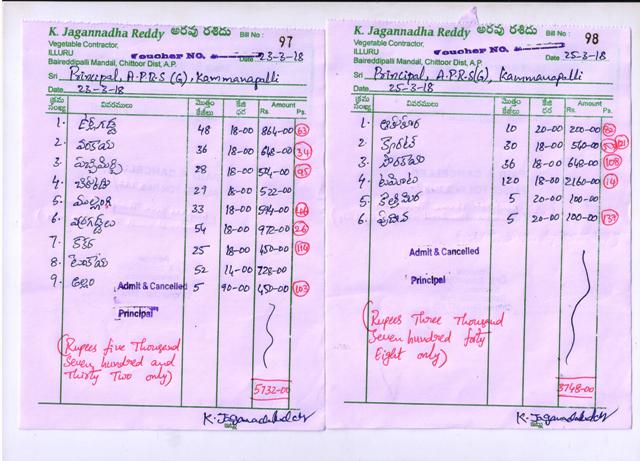 K. Jagannadha Reddy అరువు రశీదు Bill No : 97
Vegetable Contractor,
ILLURU Voucher NO. Date 23-3-18
Baireddipalli Mandal, Chittoor Dist, A.P.
Sri Principal, A.P.R.S (G), Kammanapalli
Date 23-3-18
క్రమ సంఖ్య వివరములు మొత్తం కేజీలు కేజి ధర Amount Rs. Ps.
1. 48 18-00 864-00 63
2. వంకాయ 36 18-00 648-00 34
3. 28 18-00 504-00 95
4. 29 18-00 522-00
5. ముల్లంగి 33 18-00 594-00
6. 54 18-00 972-00 26
7. 25 18-00 450-00
8. 52 14-00 728-00
9. అల్లం 5 90-00 450-00 103
Admit & Cancelled
Principal
(Rupees five Thousand
Seven hundred and
Thirty Two only)
5732-00
K. Jagannadha Reddy
K. Jagannadha Reddy అరువు రశీదు Bill No : 98
Vegetable Contractor,
ILLURU Voucher NO. Date 25-3-18
Baireddipalli Mandal, Chittoor Dist, A.P.
Sri Principal, A.P.R.S(G), Kammanapalli
Date 25-3-18
క్రమ సంఖ్య వివరములు మొత్తం కేజీలు కేజి ధర Amount Rs. Ps.
1. 10 20-00 200-00
2. క్యారెట్ 30 18-00 540-00 101
3. 36 18-00 648-00 108
4. టమోటా 120 18-00 2160-00 14
5. కొత్తిమీర 5 20-00 100-00
6. పుదీన 5 20-00 100-00 139
Admit & Cancelled
Principal
(Rupees Three Thousand
Seven hundred forty
Eight only)
3748-00
K. Jagannadha Reddy